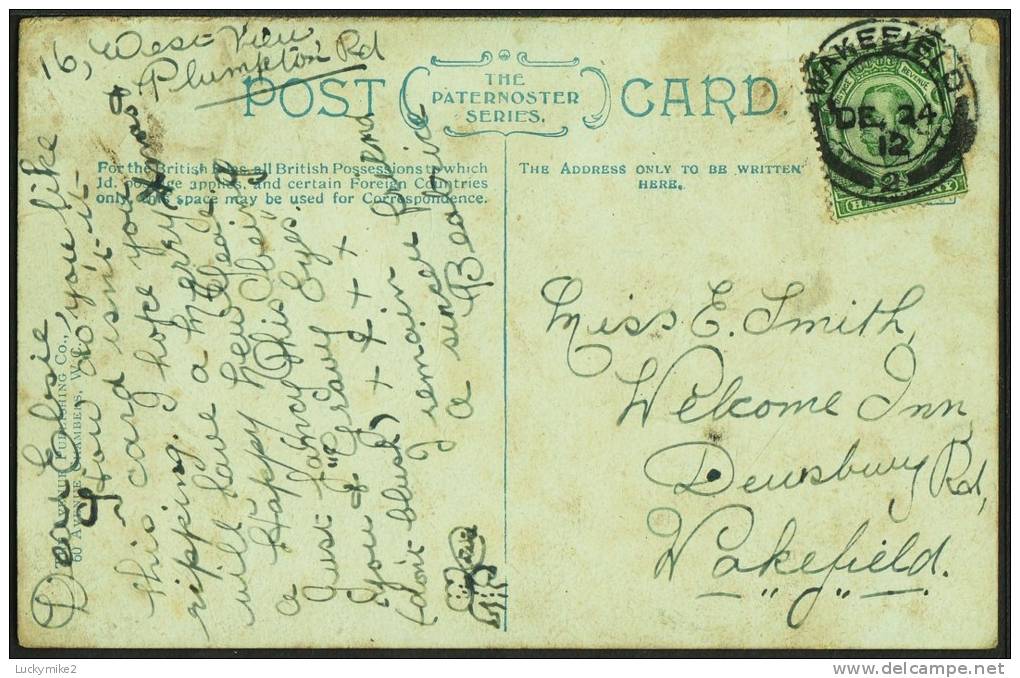 16, West View
Plumpton Rd
POST CARD
THE
PATERNOSTER
SERIES.
For the British Isles, all British Possessions to which
½d. postage applies, and certain Foreign Countries
only, this space may be used for Correspondence.
THE ADDRESS ONLY TO BE WRITTEN
HERE.
WAKEFIELD
DE. 24
12
2
POSTAGE REVENUE
Dear Elsie
How do you like
this card isn't it
ripping. I hope you
will have a Merry Xmas &
a Happy New Year.
Just fancy Phis being
you & "Gravy" Eyes.
(don't blush) + + + +
I remain Your friend
a sincer
Beatrice
PUBLISHING CO.,
60 AVENUE CHAMBERS, W.C.
Miss E. Smith,
Welcome Inn,
Dewsbury Rd,
Wakefield.
Luckymike2
delcampe.net